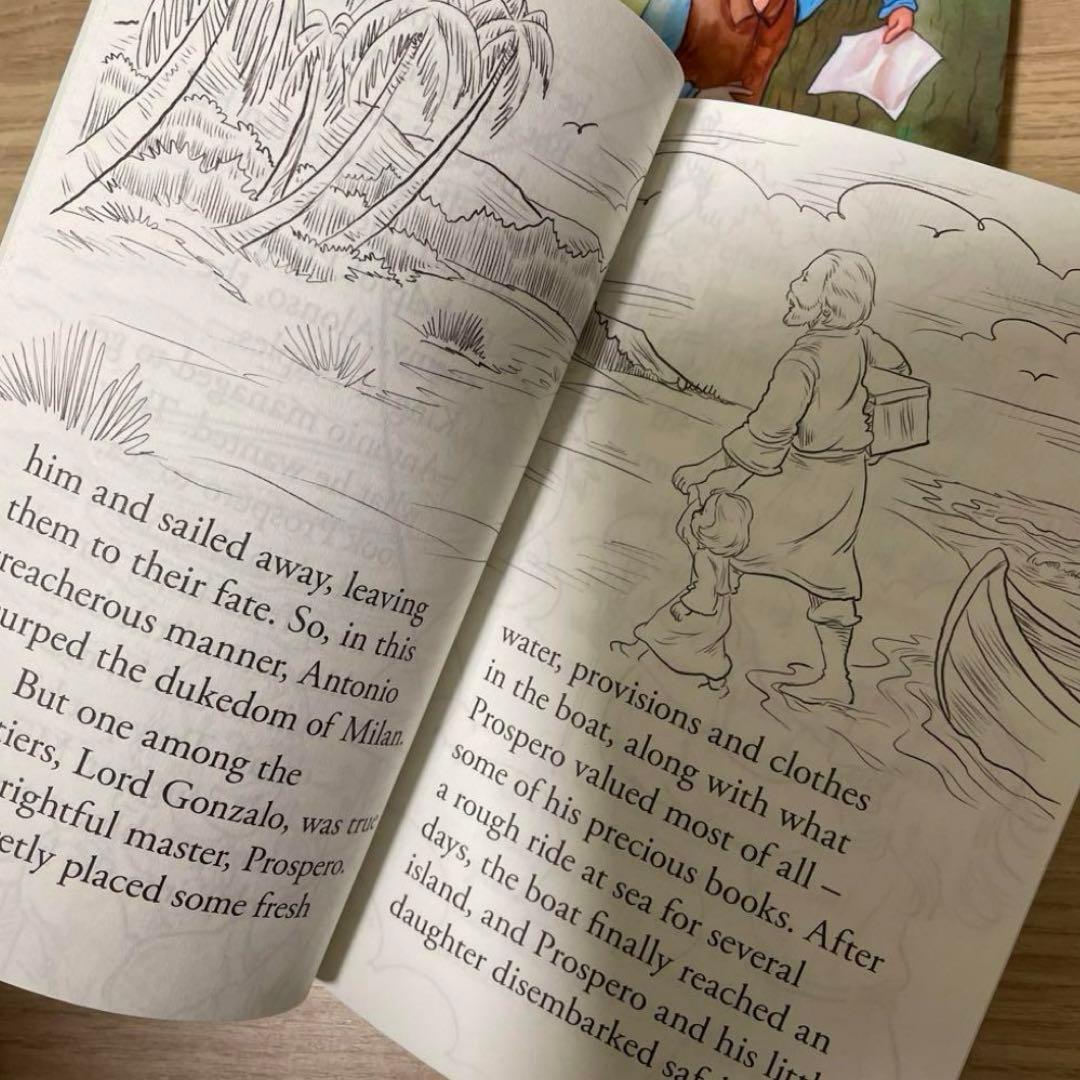 him and sailed away, leaving
them to their fate. So, in this
reacherous manner, Antonio
urped the dukedom of Milan.
But one among the
tiers, Lord Gonzalo, was true
rightful master, Prospero.
etly placed some fresh
water, provisions and clothes
in the boat, along with what
Prospero valued most of all –
some of his precious books. After
a rough ride at sea for several
days, the boat finally reached an
island, and Prospero and his
daughter disembarked